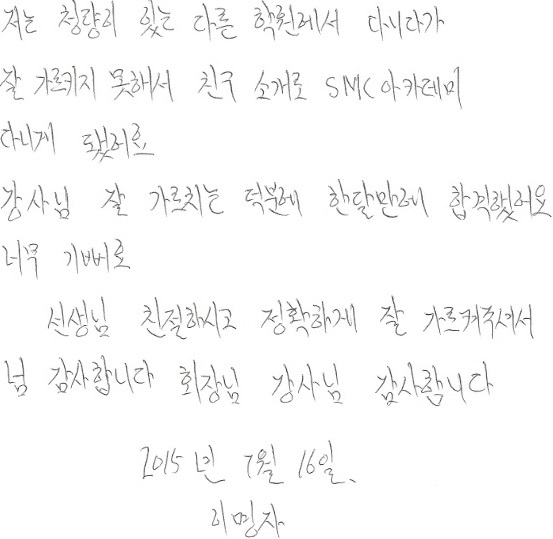 저는 청량리 있는 다른 학원에서 다니다가
잘 가르키지 못해서 친구 소개로 SMC아카데미
다니게 됐어요
강사님 잘 가르치는 덕분에 한달만에 합격했어요
너무 기뻐요
선생님 친절하시고 정확하게 잘 가르켜주셔서
넘 감사합니다 회장님 강사님 감사합니다
2015년 7월 16일.
이명자